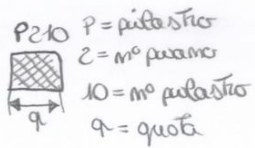 P210 P = pilastro
2 = n° piano
10 = n° pilastro
q q = quota